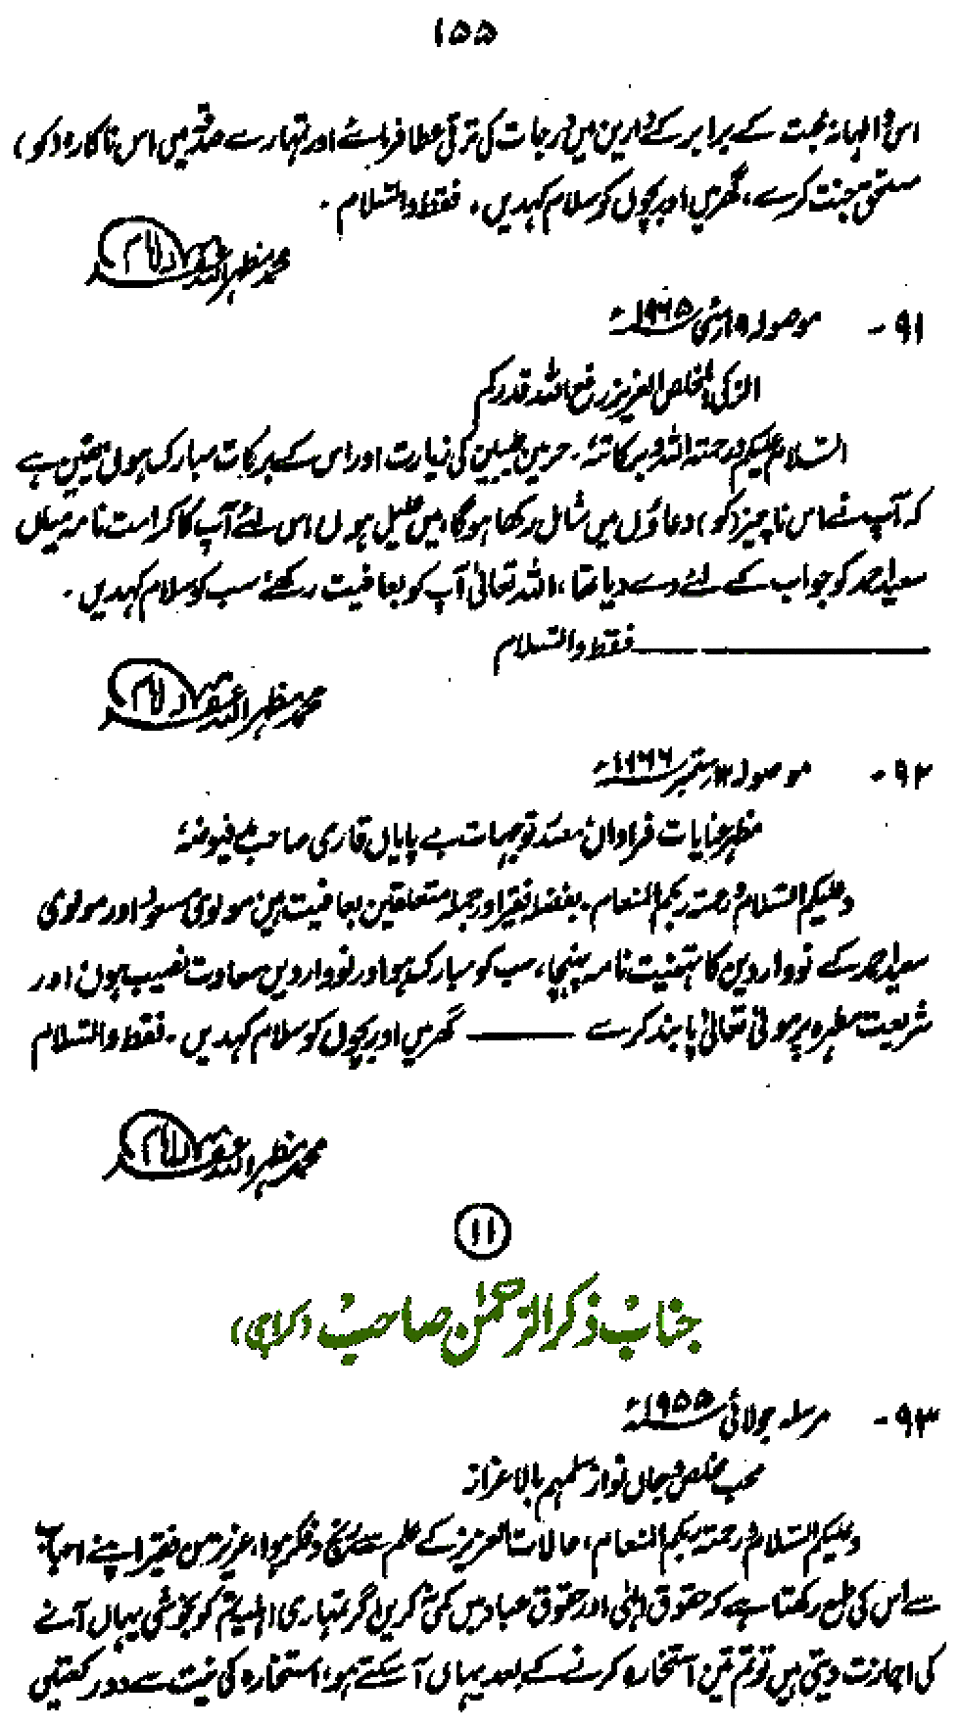 ۱۵۵
اس والہانہ محبت کے برابر کے دارین میں درجات کی ترقی عطا فرمائے اور تمہارے صدقہ میں اس ناکارہ (کو)
مستحق جنت کرے، گھر میں اور بچوں کو سلام کہدیں۔ فقط والسلام۔
محمد مظہر اللہ غفرلہ دلامام
۹۱- موصولہ ۱۹ مئی ۱۹۶۵ء
الزکی المخلص العزیز رفع اللہ قدرکم
السلام علیکم ورحمتہ اللہ وبرکاتہٗ۔ حرمین طیبین کی زیارت اور اس کے برکات مبارک ہوں یقین ہے
کہ آپ نے اس ناچیز (کو) دعاؤں میں شامل رکھا ہوگا، میں علیل ہوں اس لئے آپ کا کرامت نامہ میاں
سعید احمد کو جواب کے لئے دے دیا تھا، اللہ تعالیٰ آپ کو بعافیت رکھے سب کو سلام کہدیں۔
فقط والسلام
محمد مظہر اللہ غفرلہ دلامام
۹۲- موصولہ ۱۳ ستمبر ۱۹۶۶ء
مظہر عنایات فراواں مصدر توجہات بے پایاں قاری صاحب عم فیوضہٗ
وعلیکم السلام ورحمۃ ربکم المنعام۔ بفضلہ فقیر اور جملہ متعلقین بعافیت ہیں مولوی مسعود اور مولوی
سعید احمد کے نوواردین کا تہنیت نامہ پہنچا، سب کو مبارک ہو اور نوواردین سعادت نصیب ہوں اور
شریعت مطہرہ پر مولیٰ تعالیٰ پابند کرے —— گھر میں اور بچوں کو سلام کہدیں۔ فقط والسلام
محمد مظہر اللہ غفرلہ دلامام
۱۱
جناب ذکر الرحمٰن صاحب (کراچی)
۹۳- مرسلہ جولائی ۱۹۵۵ء
محب مخلص وجاں نواز سلمہم بالاعزاز
وعلیکم السلام ورحمۃ ربکم المنعام، حالات العزیز کے علم سے رنج وفکر ہوا، عزیز من فقیر اپنے احباب
سے اس کی طمع رکھتا ہے کہ حقوق الٰہی اور حقوق عباد میں کمی نہ کریں اگر تمہاری اہلیہ تم کو بخوشی یہاں آنے
کی اجازت دیتی ہیں تو تم تین استخارہ کرنے کے بعد یہاں آسکتے ہو، استخارہ کی نیت سے دو رکعتیں